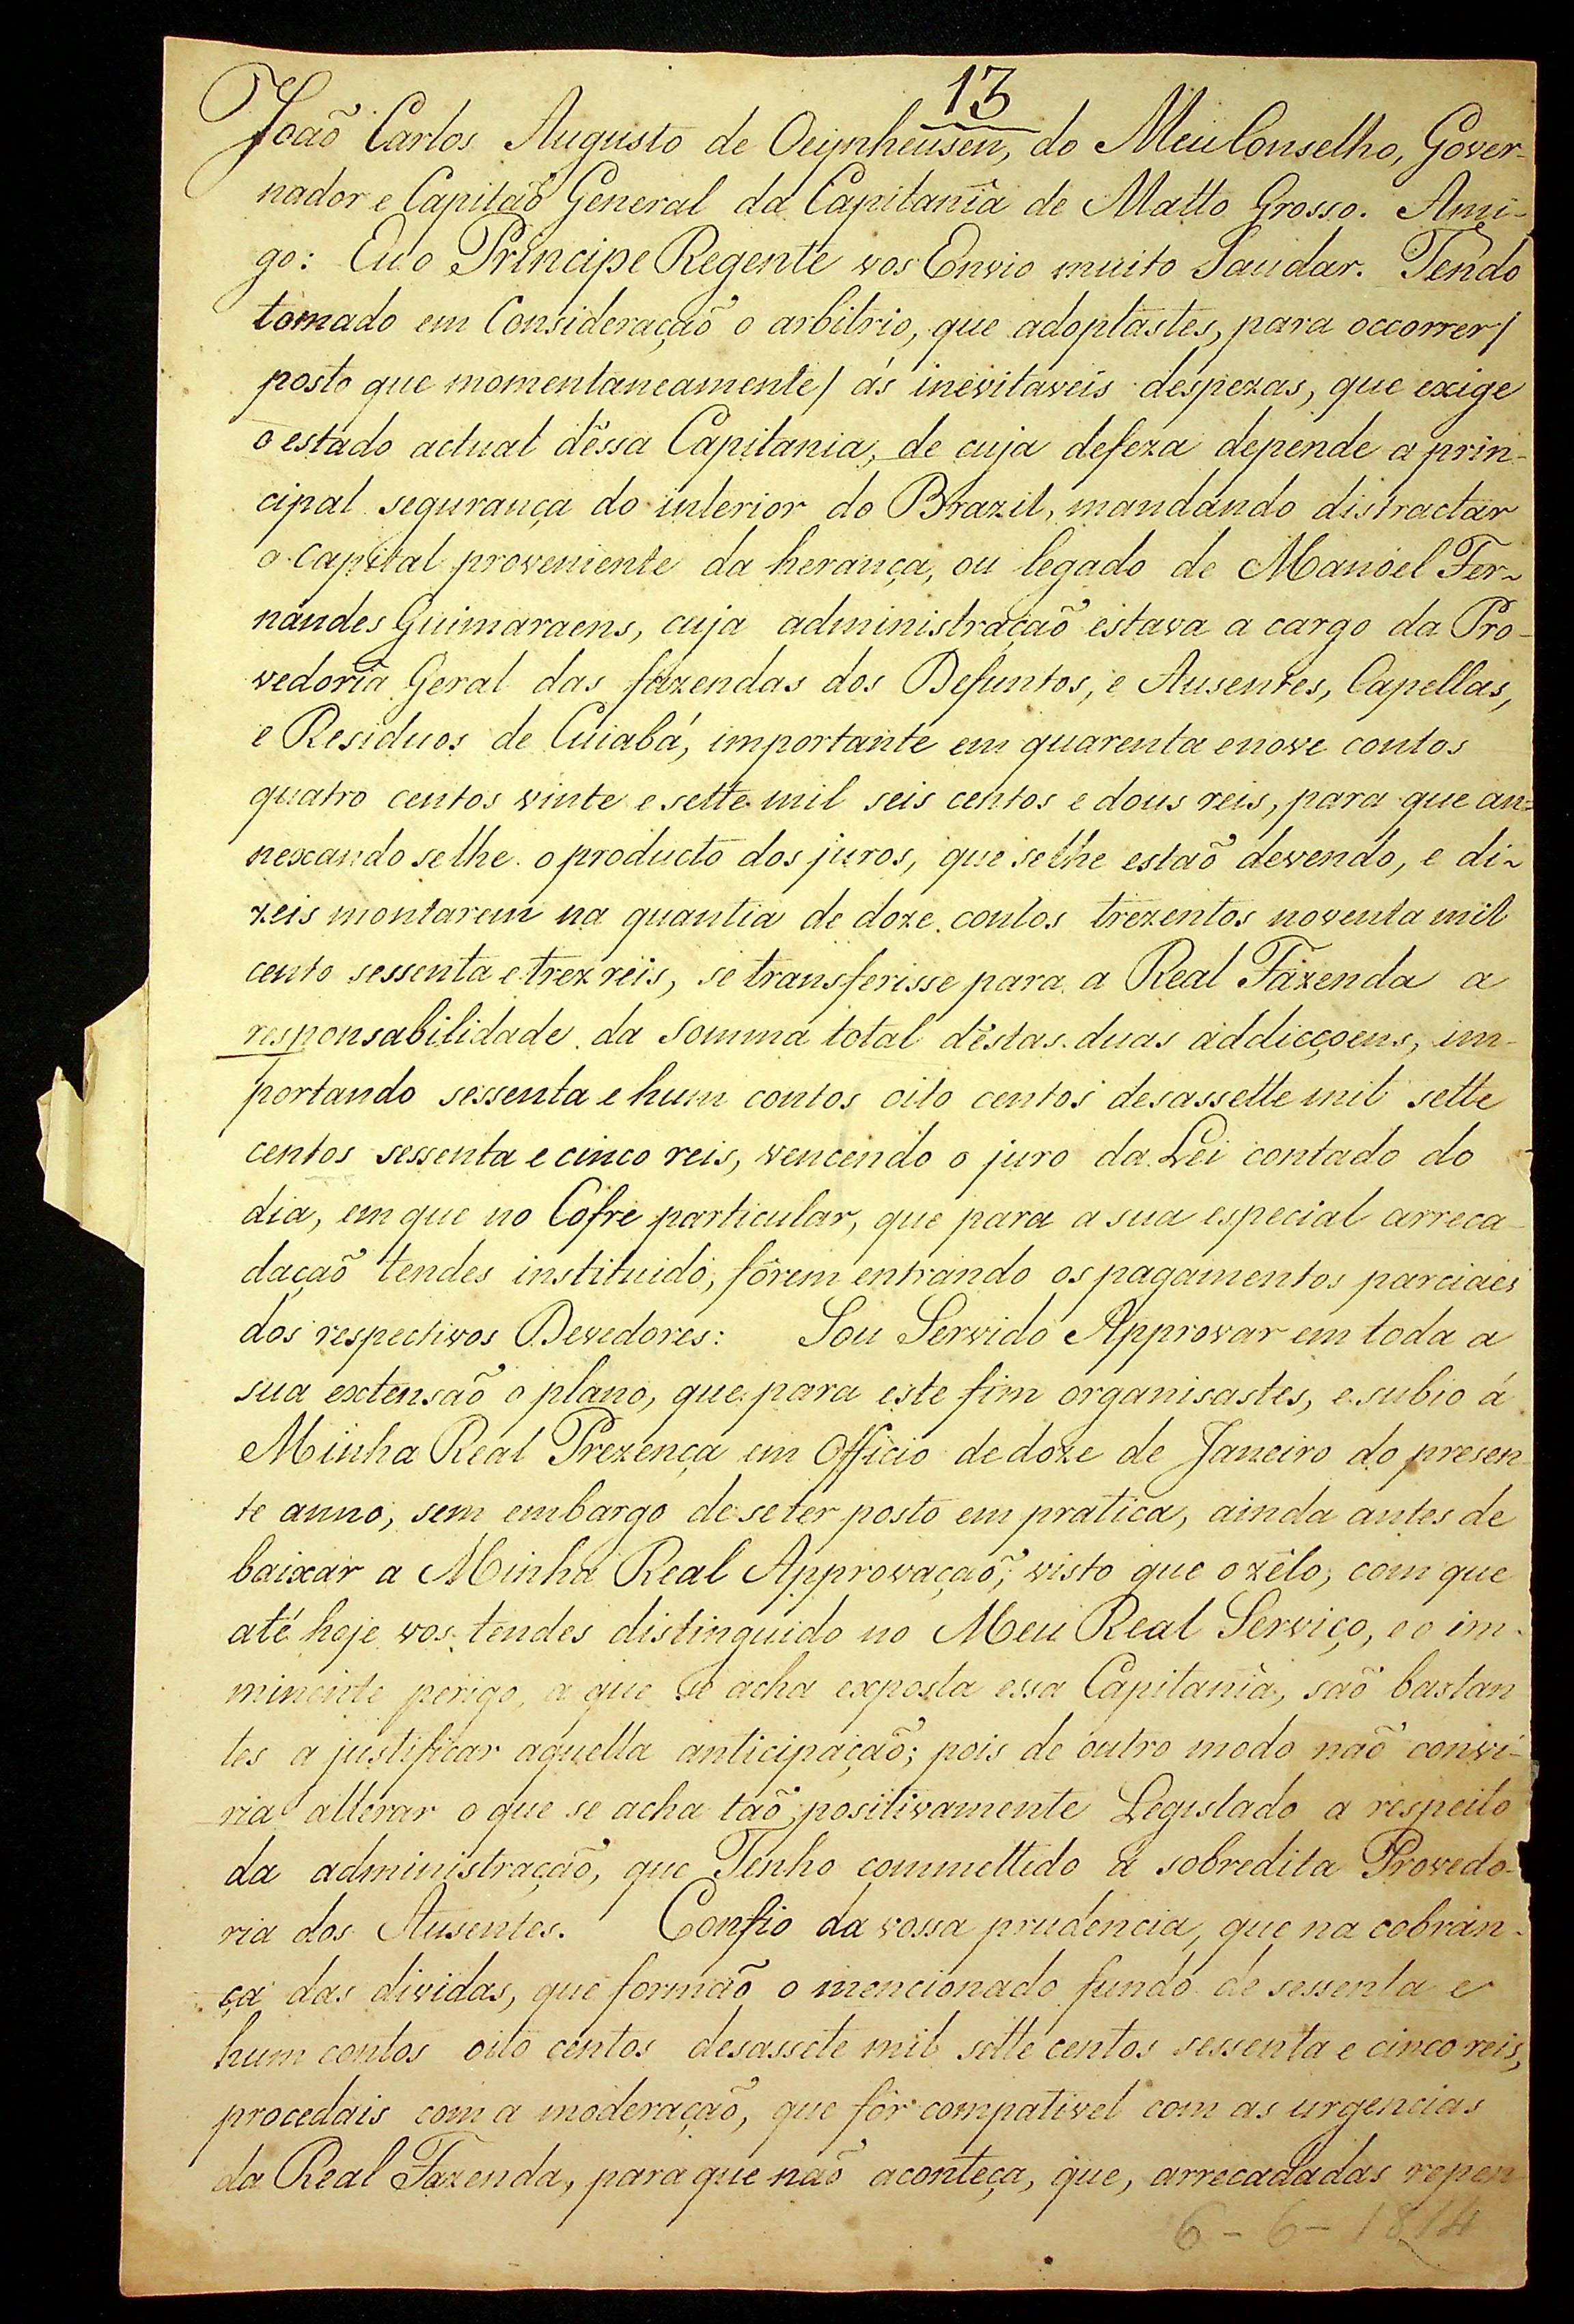 13
João Carlos Augusto de Oeynheusen, do Meu Conselho, Gover-
nador e Capitaõ General da Capitanîa de Matto Grosso. Ami-
go: Eu o Principe Regente vos Envio muito Saudar. Tendo
tomado em Consideraçaõ o arbitrio, que adoptastes, para occorrer/
posto que momentaneamente/ ás inevitaveis despezas, que exige
o estado actual déssa Capitania, de cuja defeza depende a prin-
cipal segurança do interior do Brazil, mandando distractar
o capital proveniente da herança, ou legado de Manoel Fer-
nandes Guimaraens, cuja administraçaõ estava a cargo da Pro-
vedoria Geral das fazendas dos Defuntos, e Ausentes, Capellas,
e Residuos de Cuiabá, importante em quarenta e nove contos
quatro centos vinte e sette mil seis centos e dous reis, para que an=
nexando se lhe o producto dos juros, que se lhe estaõ devendo, e di-
zeis montarem na quantia de doze contos trezentos noventa mil
cento sessenta e trez reis, se transferisse para a Real Fazenda a
responsabilidade da somma total déstas duas addicçoens, im-
portando sessenta e hum contos oito centos desassette mil sette
centos sessenta e cinco reis, vencendo o juro da Lei contado do
dia, em que no Cofre particular, que para a sua especial arreca-
daçaõ tendes instituido, fôrem entrando os pagamentos parciaes
dos respectivos Devedores: Sou Servido Approvar em toda a
sua extensaõ o plano, que para este fim organisastes, e subio á
Minha Real Prezença em Officio de doze de Janeiro do presen-
te anno, sem embargo de se ter posto em pratica, ainda antes de
baixar a Minha Real Approvaçaõ; visto que o zêlo, com que
até hoje vos tendes distinguido no Meu Real Serviço, e o im-
minente perigo, a que se acha exposta essa Capitanîa, saõ bastan
tes a justificar aquella anticipaçaõ; pois de outro modo naõ convi-
ria alterar o que se acha taõ positivamente Legislado a respeito
da administraçaõ, que Tenho commettido á sobredita Provedo-
ria dos Ausentes. Confio da vossa prudencia, que na cobran-
ça das dividas, que formaõ o mencionado fundo de sessenta e
hum contos oito centos desassete mil sette centos sessenta e cinco reis,
procedais com a moderaçaõ, que fôr compativel com as urgencias
da Real Fazenda, para que naõ aconteça, que, arrecadadas repen
6-6-1814